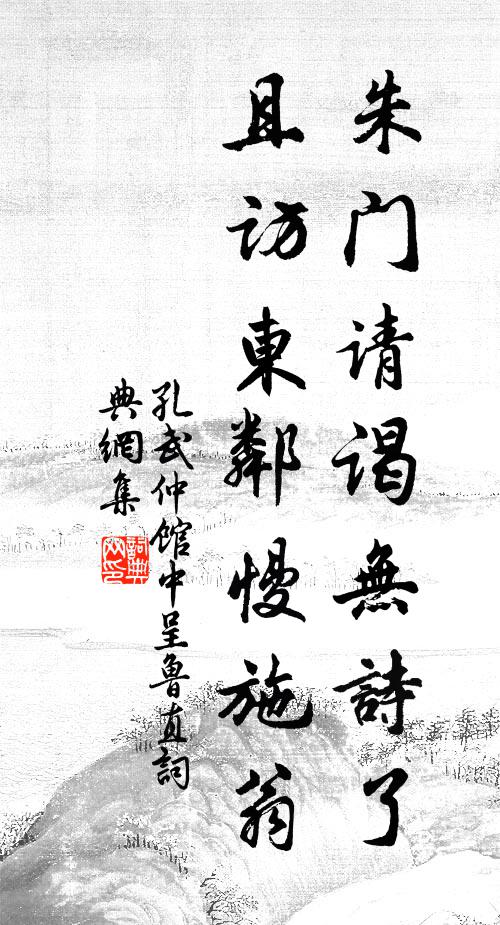 朱门请谒無詩了
且访東鄰慢施翁
孔武仲館中呈魯直詞
典網集
詞典
网印